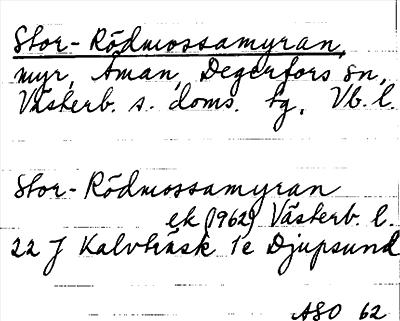 Stor-Rödmossamyran,
myr, Åman, Degerfors sn,
Västerb. s. doms. tg, Vb. l.
Stor-Rödmossamyran
ek (1962) Västerb. l.
22 J Kalvträsk 1e Djupsund
ASO 62